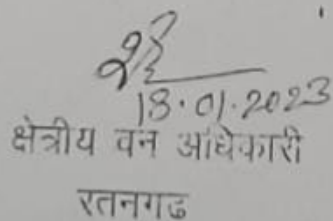 18.01.2023
क्षेत्रीय वन अधिकारी
रतनगढ